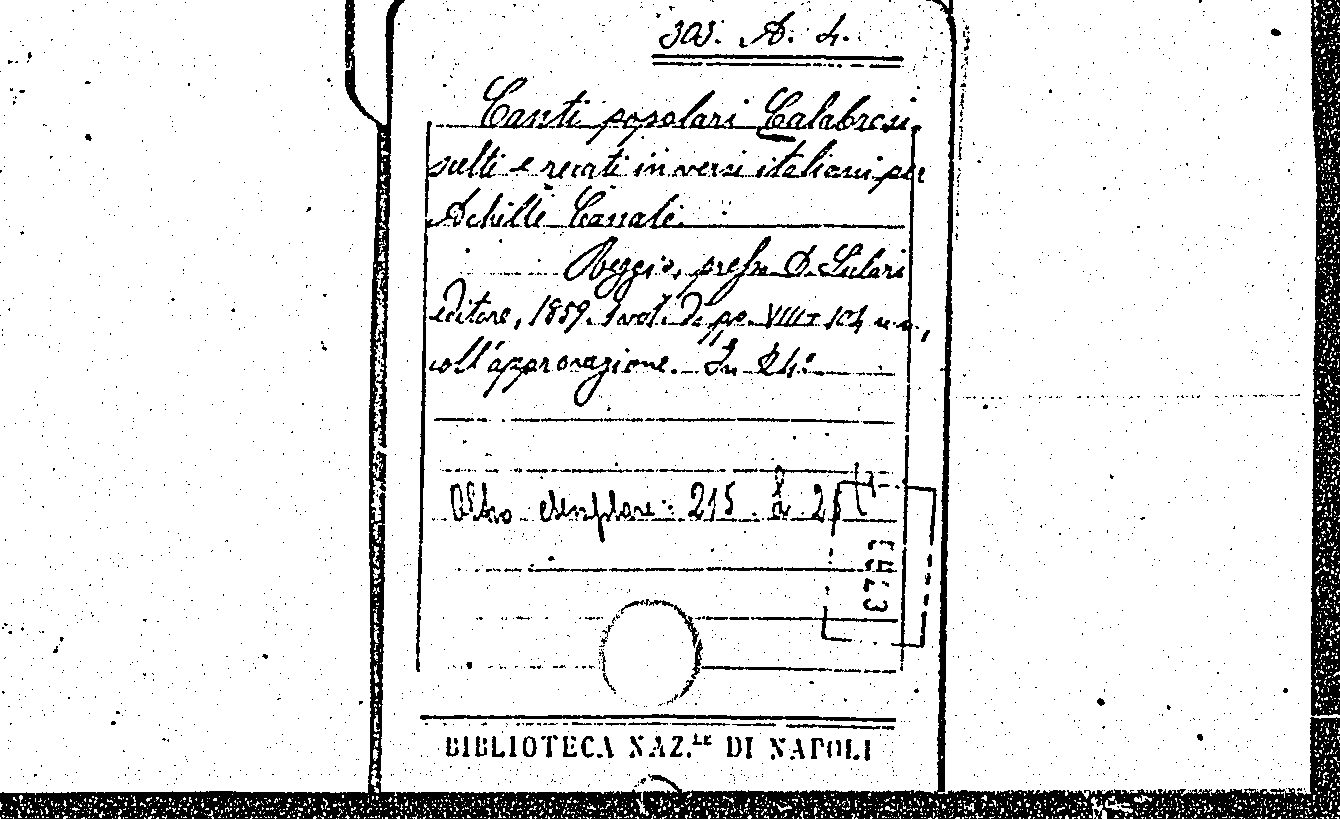 303. A. 4.
Canti popolari Calabresi,
scelti e recati in versi italiani per
Achille Canale.
Reggio, presso D. Lulari
editore, 1859. 1 vol. di pp. VIII+104 n. n.,
coll'approvazione. In 24.º
Altro esemplare: 215. L. 25
BIBLIOTECA NAZ.LE DI NAPOLI